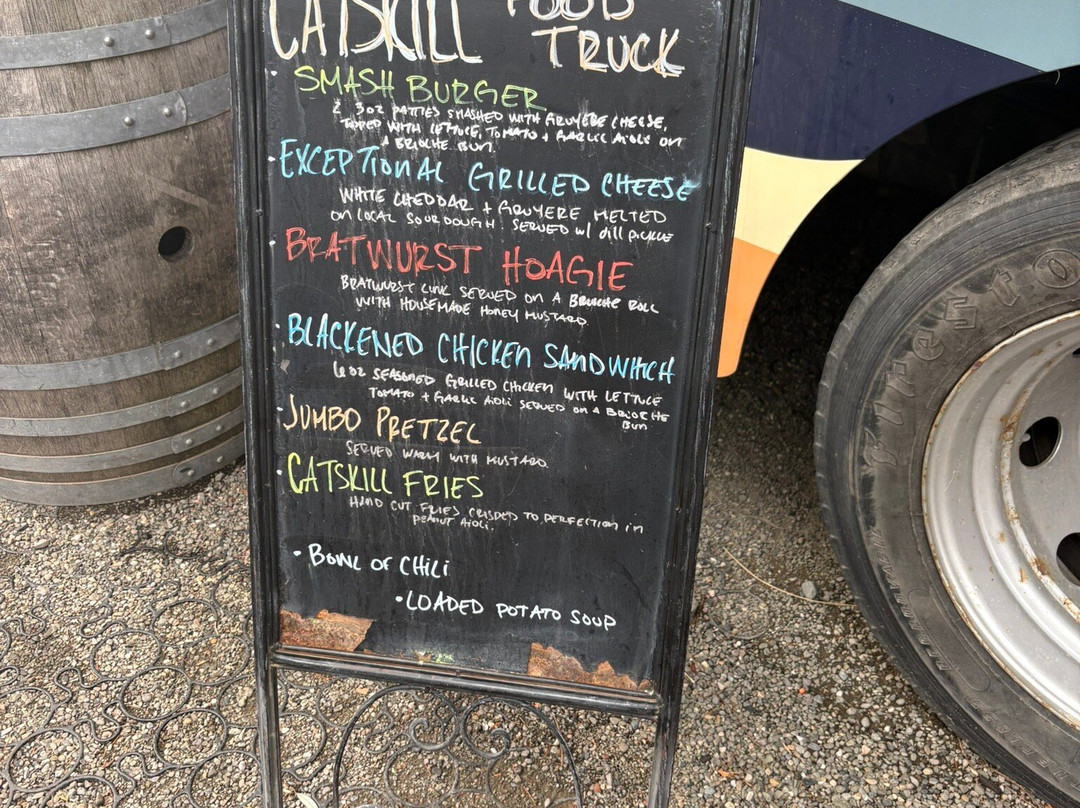 CATSKILL FOOD
TRUCK
• SMASH BURGER
2 3oz PATTIES SMASHED WITH GRUYERE CHEESE,
TOPPED WITH LETTUCE, TOMATO + GARLIC AIOLI ON
A BRIOCHE BUN.
• EXCEPTIONAL GRILLED CHEESE
WHITE CHEDDAR + GRUYERE MELTED
ON LOCAL SOURDOUGH. SERVED w/ dill pickle
• BRATWURST HOAGIE
BRATWURST LINK SERVED ON A BRIOCHE ROLL
WITH HOUSEMADE HONEY MUSTARD
• BLACKENED CHICKEN SANDWHICH
6oz SEASONED GRILLED CHICKEN WITH LETTUCE
TOMATO + GARLIC AIOLI SERVED ON A BRIOCHE
BUN
• JUMBO PRETZEL
SERVED WARM WITH MUSTARD
• CATSKILL FRIES
HAND CUT FRIES CRISPED TO PERFECTION in
PEANUT AIOLI.
• BOWL OF CHILI
• LOADED POTATO SOUP
Firesto